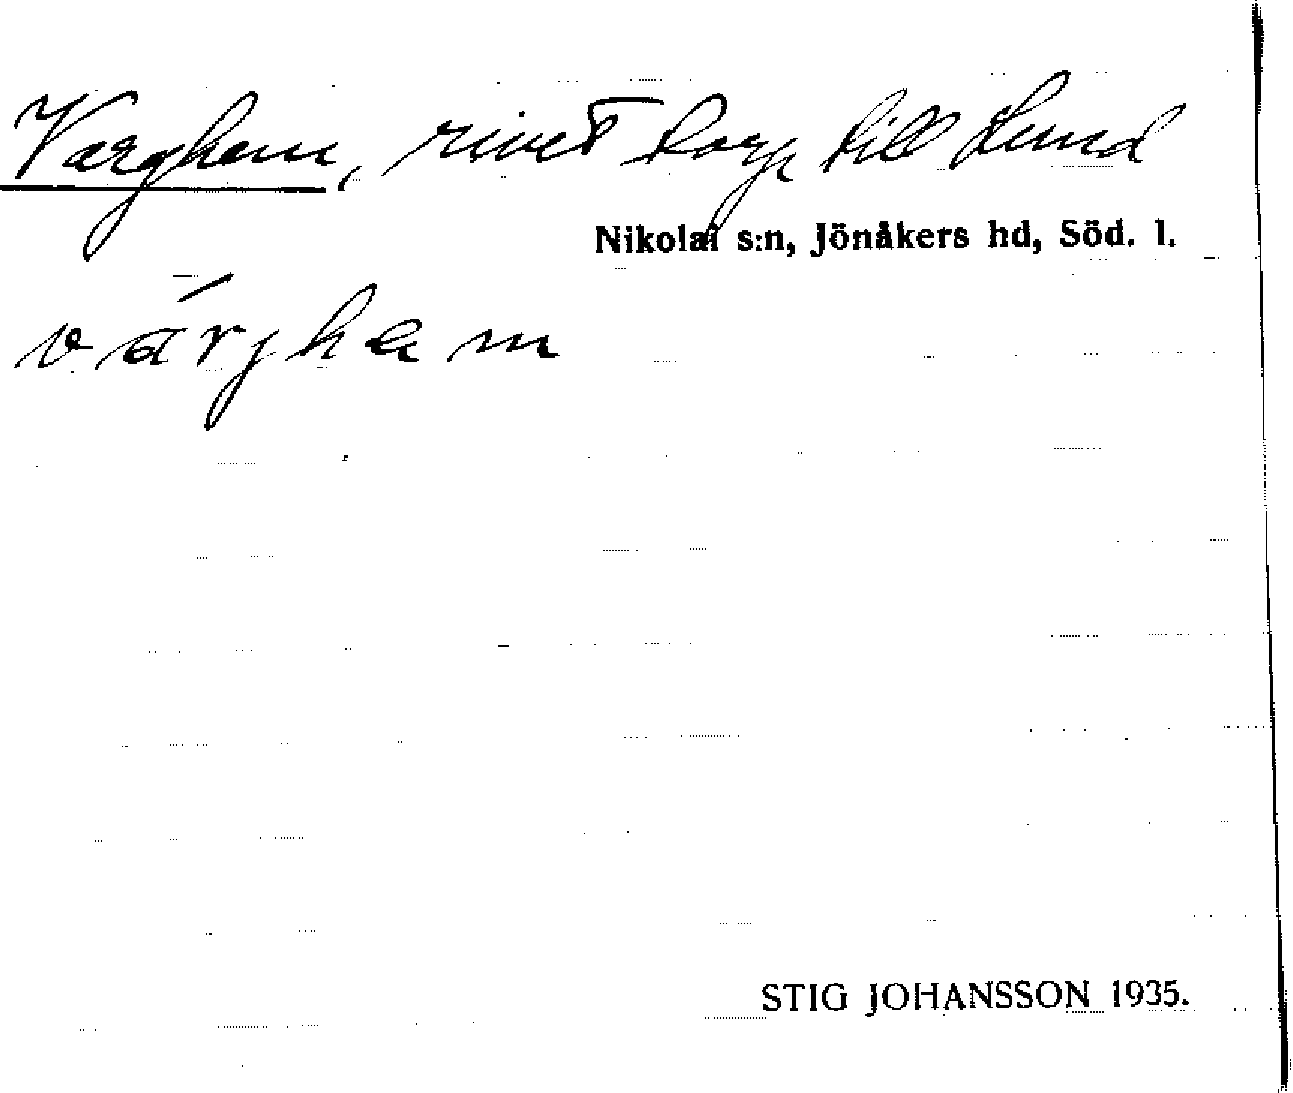 Varghem, rivet torp till Lund
Nikolai s:n, Jönåkers hd, Söd. l.
várghem
STIG JOHANSSON 1935.